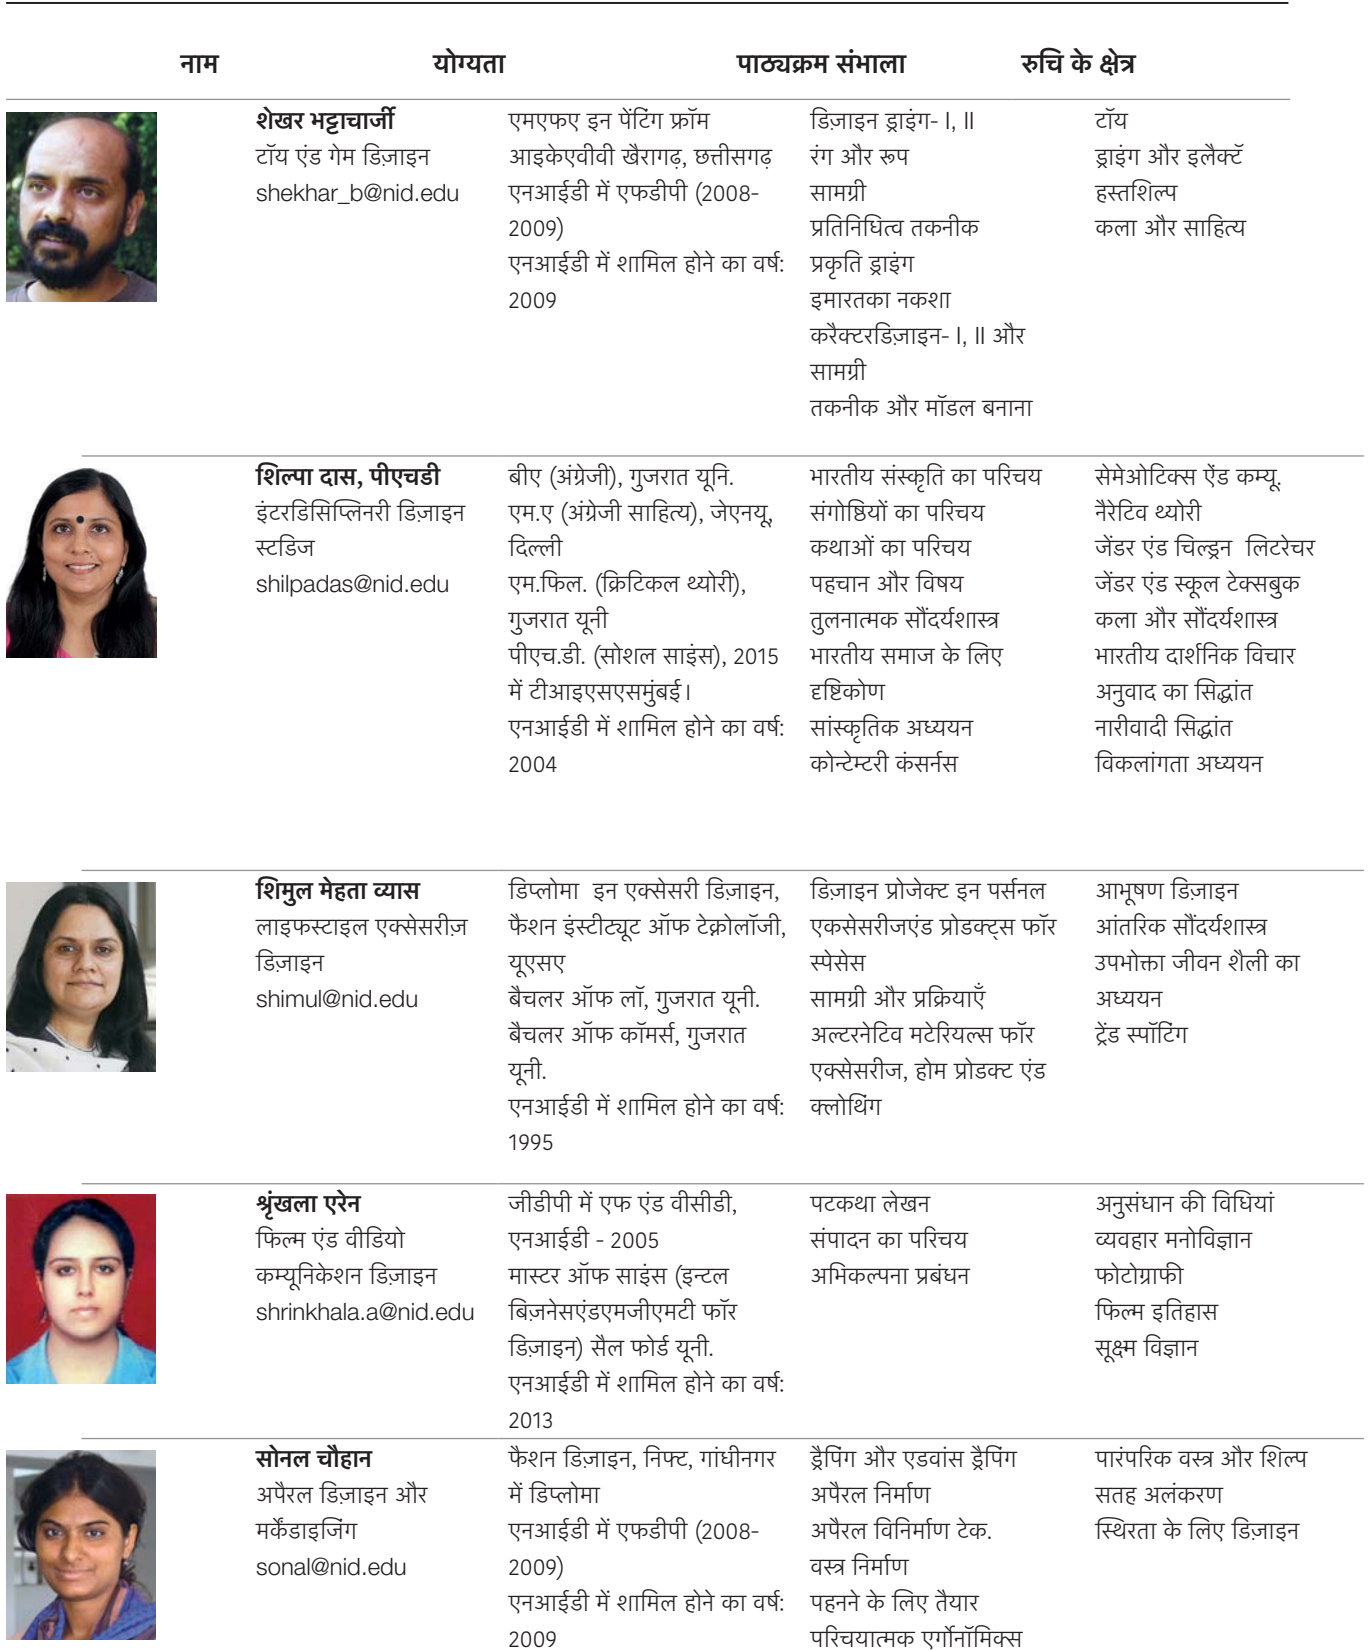 नाम योग्यता पाठ्यक्रम संभाला रुचि के क्षेत्र
शेखर भट्टाचार्जी
टॉय एंड गेम डिज़ाइन
shekhar_b@nid.edu
एमएफए इन पेंटिंग फ्रॉम
आइकेएवीवी खैरागढ़, छत्तीसगढ़
एनआईडी में एफडीपी (2008-
2009)
एनआईडी में शामिल होने का वर्ष:
2009
डिज़ाइन ड्राइंग- I, II
रंग और रूप
सामग्री
प्रतिनिधित्व तकनीक
प्रकृति ड्राइंग
इमारतका नकशा
करैक्टरडिज़ाइन- I, II और
सामग्री
तकनीक और मॉडल बनाना
टॉय
ड्राइंग और इलैक्टॅ
हस्तशिल्प
कला और साहित्य
शिल्पा दास, पीएचडी
इंटरडिसिप्लिनरी डिज़ाइन
स्टडिज
shilpadas@nid.edu
बीए (अंग्रेजी), गुजरात यूनि.
एम.ए (अंग्रेजी साहित्य), जेएनयू,
दिल्ली
एम.फिल. (क्रिटिकल थ्योरी),
गुजरात यूनी
पीएच.डी. (सोशल साइंस), 2015
में टीआइएसएसमुंबई।
एनआईडी में शामिल होने का वर्ष:
2004
भारतीय संस्कृति का परिचय
संगोष्ठियों का परिचय
कथाओं का परिचय
पहचान और विषय
तुलनात्मक सौंदर्यशास्त्र
भारतीय समाज के लिए
दृष्टिकोण
सांस्कृतिक अध्ययन
कोन्टेम्टरी कंसर्नस
सेमेओटिक्स ऐंड कम्यू.
नैरेटिव थ्योरी
जेंडर एंड चिल्ड्रन लिटरेचर
जेंडर एंड स्कूल टेक्सबुक
कला और सौंदर्यशास्त्र
भारतीय दार्शनिक विचार
अनुवाद का सिद्धांत
नारीवादी सिद्धांत
विकलांगता अध्ययन
शिमुल मेहता व्यास
लाइफस्टाइल एक्सेसरीज़
डिज़ाइन
shimul@nid.edu
डिप्लोमा इन एक्सेसरी डिज़ाइन,
फैशन इंस्टीट्यूट ऑफ टेक्नोलॉजी,
यूएसए
बैचलर ऑफ लॉ, गुजरात यूनी.
बैचलर ऑफ कॉमर्स, गुजरात
यूनी.
एनआईडी में शामिल होने का वर्ष:
1995
डिज़ाइन प्रोजेक्ट इन पर्सनल
एकसेसरीजएंड प्रोडक्ट्स फॉर
स्पेसेस
सामग्री और प्रक्रियाएँ
अल्टरनेटिव मटेरियल्स फॉर
एक्सेसरीज, होम प्रोडक्ट एंड
क्लोथिंग
आभूषण डिज़ाइन
आंतरिक सौंदर्यशास्त्र
उपभोक्ता जीवन शैली का
अध्ययन
ट्रेंड स्पॉटिंग
श्रृंखला एरेन
फिल्म एंड वीडियो
कम्यूनिकेशन डिज़ाइन
shrinkhala.a@nid.edu
जीडीपी में एफ एंड वीसीडी,
एनआईडी - 2005
मास्टर ऑफ साइंस (इन्टल
बिज़नेसएंडएमजीएमटी फॉर
डिज़ाइन) सैल फोर्ड यूनी.
एनआईडी में शामिल होने का वर्ष:
2013
पटकथा लेखन
संपादन का परिचय
अभिकल्पना प्रबंधन
अनुसंधान की विधियां
व्यवहार मनोविज्ञान
फोटोग्राफी
फिल्म इतिहास
सूक्ष्म विज्ञान
सोनल चौहान
अपैरल डिज़ाइन और
मर्केंडाइजिंग
sonal@nid.edu
फैशन डिज़ाइन, निफ्ट, गांधीनगर
में डिप्लोमा
एनआईडी में एफडीपी (2008-
2009)
एनआईडी में शामिल होने का वर्ष:
2009
ड्रैपिंग और एडवांस ड्रैपिंग
अपैरल निर्माण
अपैरल विनिर्माण टेक.
वस्त्र निर्माण
पहनने के लिए तैयार
परिचयात्मक एर्गोनॉमिक्स
पारंपरिक वस्त्र और शिल्प
सतह अलंकरण
स्थिरता के लिए डिज़ाइन